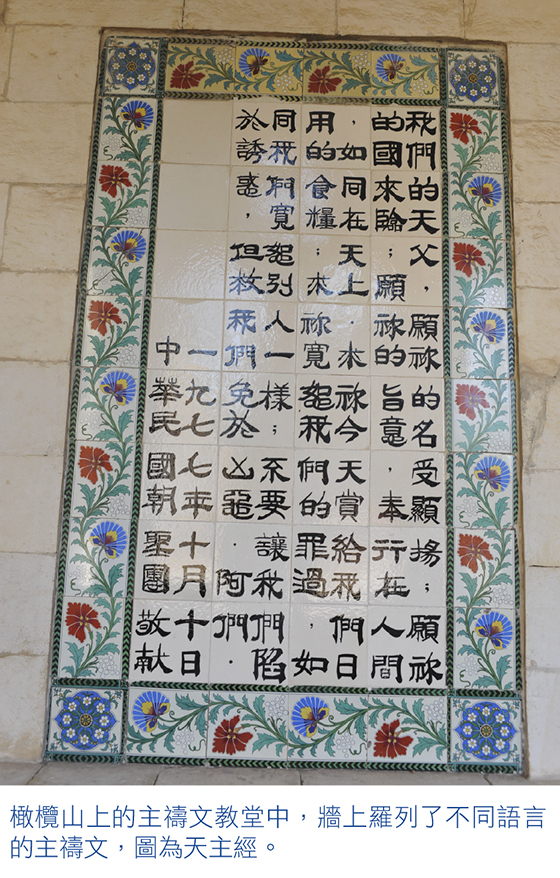 我們的天父，願祢的名受顯揚；願祢
的國來臨；願祢的旨意，奉行在人間
，如同在天上．求祢今天賞給我們日
用的食糧；求祢寬恕我們的罪過，如
同我們寬恕別人一樣；不要讓我們陷
於誘惑，但救我們免於凶惡．阿們．
一九七七年十月十日
中華民國朝聖團敬献
橄欖山上的主禱文教堂中，牆上羅列了不同語言
的主禱文，圖為天主經。